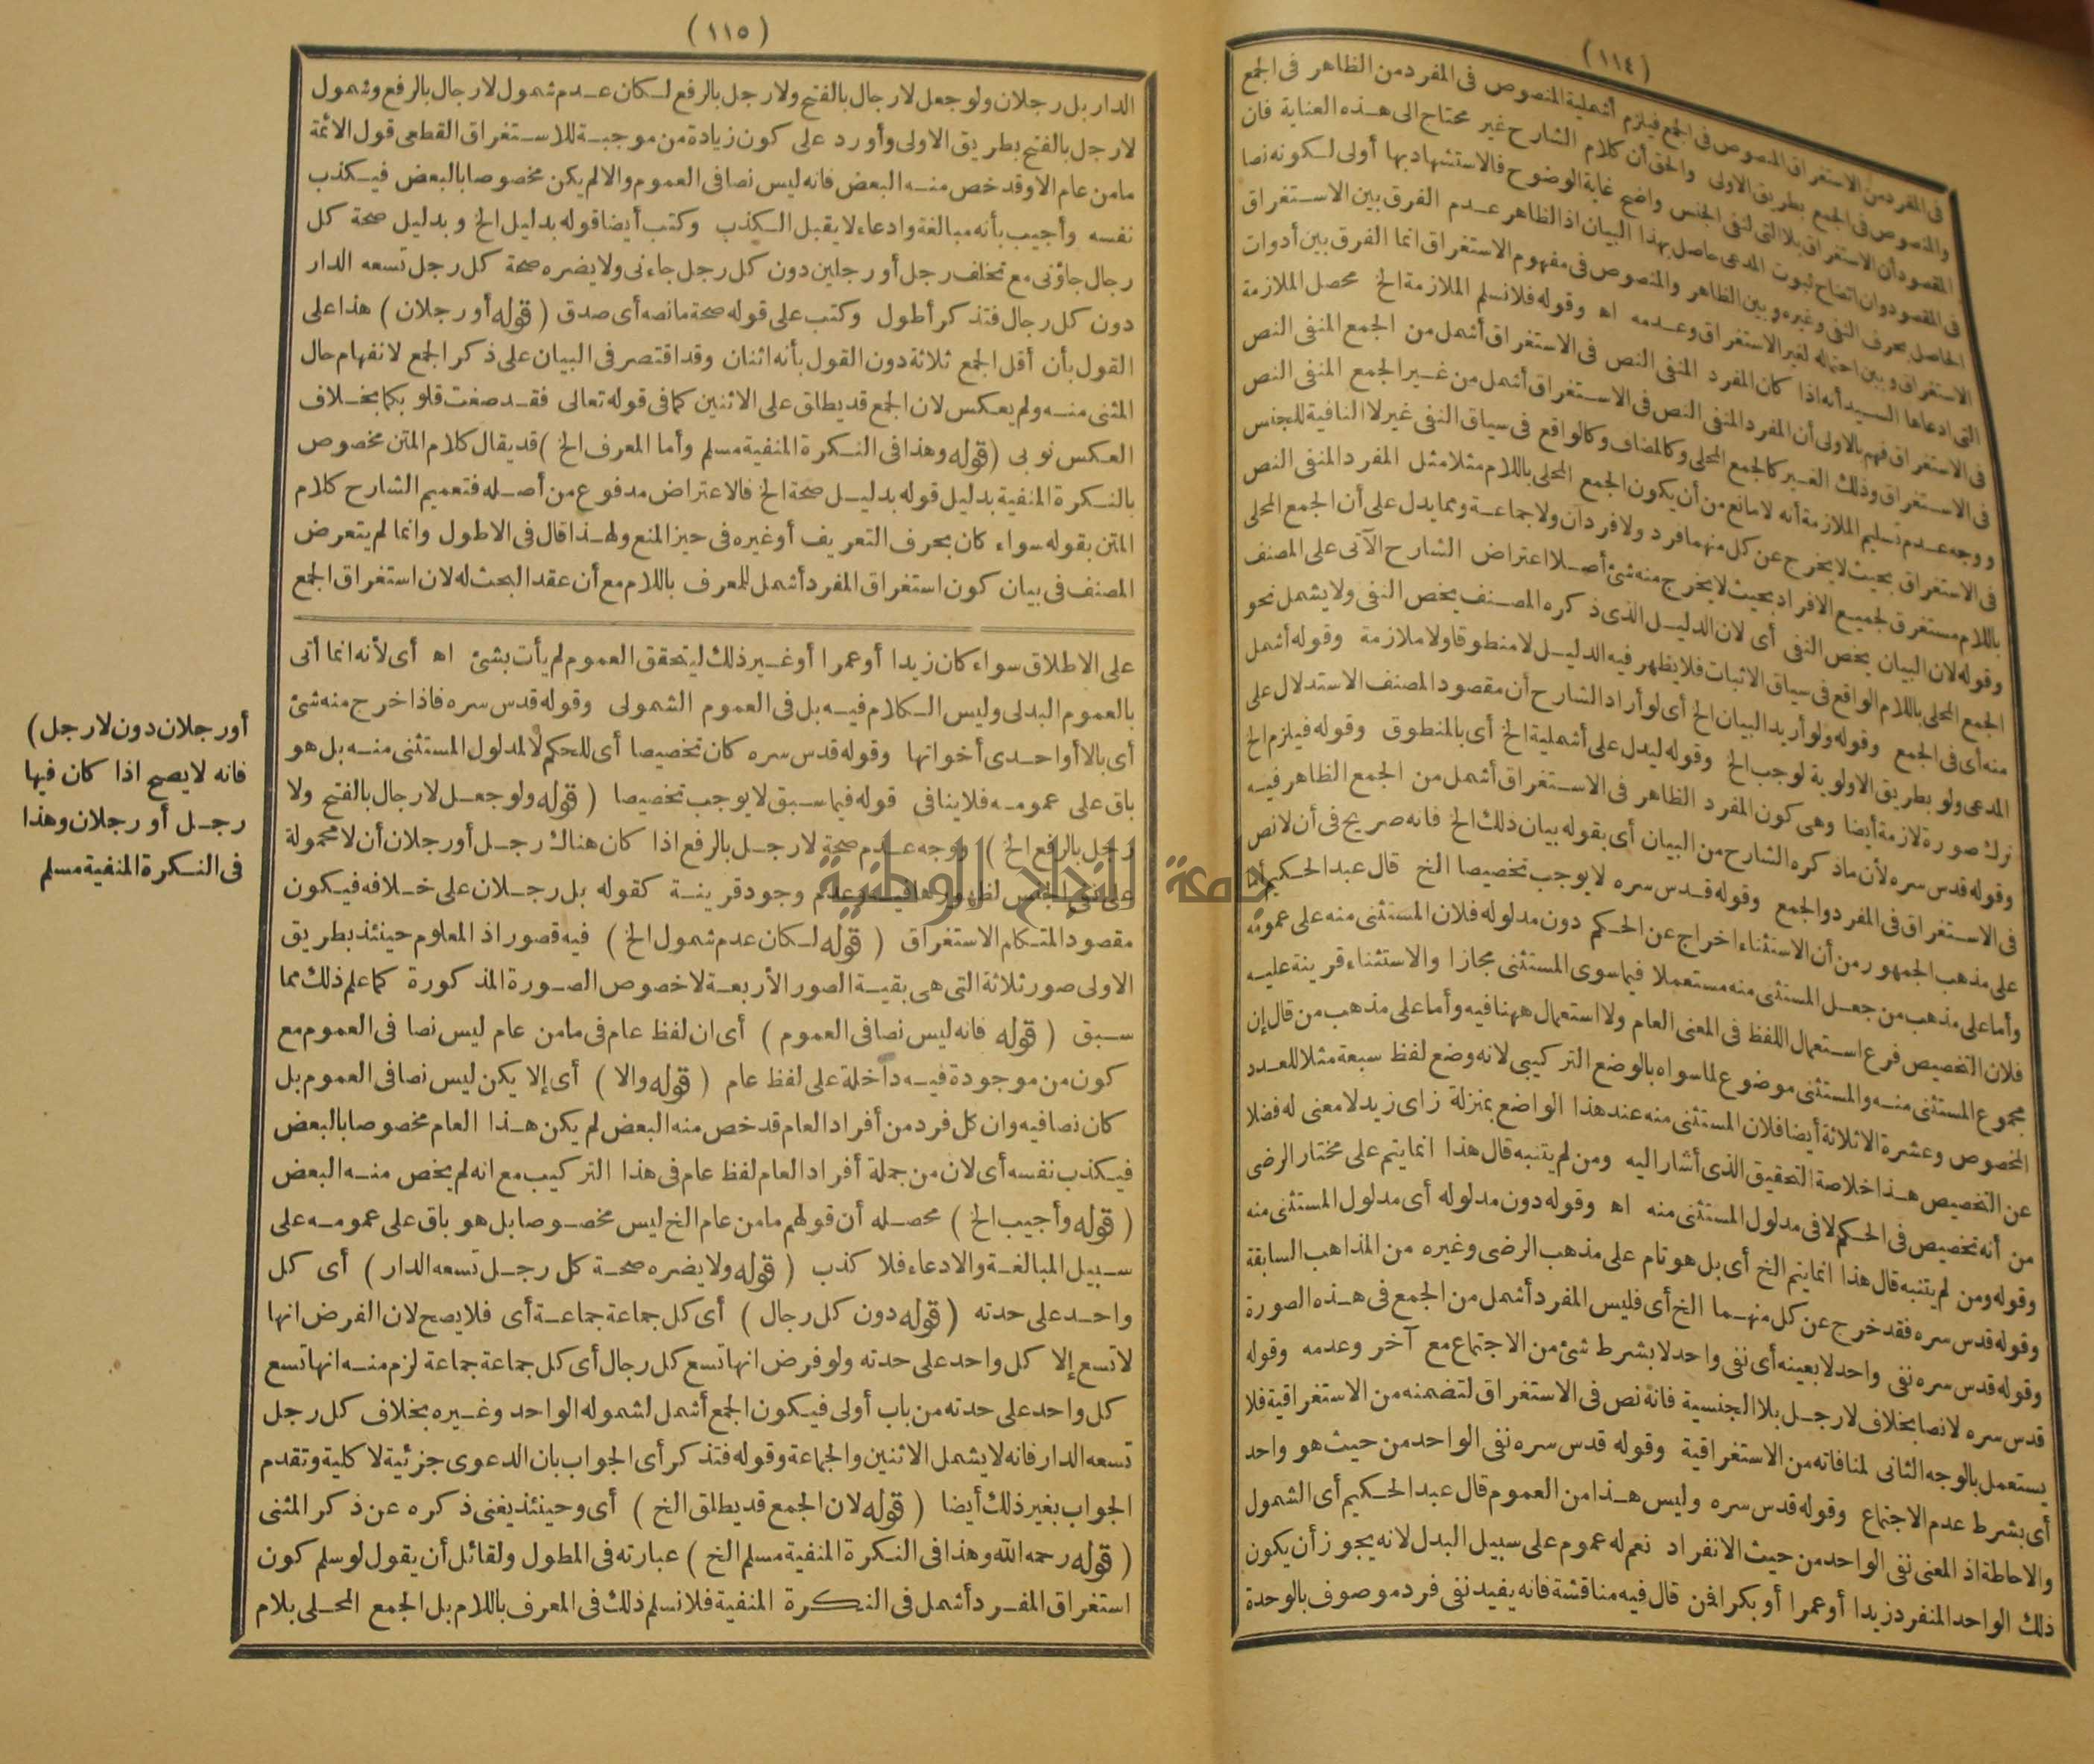 (١١٤)
فى المفرد من الاستغراق المنصوص فى الجمع فيلزم أشملية المنصوص فى المفرد من الظاهر فى الجمع
والمنصوص فى الجمع بطريق الاولى والحق أن كلام الشارح غير محتاج الى هذه العناية فان
المقصود أن الاستغراق بلا التى لنفى الجنس واضح غاية الوضوح فالاستشهاد بها أولى لكونه نصا
فى المقصود وان اتضاح ثبوت المدعى حاصل بهذا البيان اذ الظاهر عدم الفرق بين الاستغراق
الحاصل بحرف النفى وغيره وبين الظاهر والمنصوص فى مفهوم الاستغراق انما الفرق بين أدوات
الاستغراق وبين احتماله لغير الاستغراق وعدمه اه وقوله فلا نسلم الملازمة الخ محصل الملازمة
التى ادعاها السيد أنه اذا كان المفرد المنفى النص فى الاستغراق أشمل من الجمع المنفى النص
فى الاستغراق فهم بالاولى أن المفرد المنفى النص فى الاستغراق أشمل من غير الجمع المنفى النص
فى الاستغراق وذلك الغير كالجمع المحلى وكالمضاف وكالواقع فى سياق النفى غير لا النافية للجنس
ووجه عدم تسليم الملازمة أنه لا مانع من أن يكون الجمع المحلى باللام مثلا مثل المفرد المنفى النص
فى الاستغراق بحيث لا يخرج عن كل منهما فرد ولا فردان ولا جماعة ومما يدل على أن الجمع المحلى
باللام مستغرق لجميع الافراد بحيث لا يخرج منه شئ أصلا اعتراض الشارح الآتى على المصنف
وقوله لان البيان يخص النفى أى لان الدليل الذى ذكره المصنف يخص النفى ولا يشمل نحو
الجمع المحلى باللام الواقع فى سياق الاثبات فلا يظهر فيه الدليل لا منطوقا ولا ملازمة وقوله أشمل
منه أى فى الجمع وقوله ولو أريد البيان الخ أى لو أراد الشارح أن مقصود المصنف الاستدلال على
المدعى ولو بطريق الاولوية لوجب الخ وقوله ليدل على أشملية الخ أى بالمنطوق وقوله فيلزم الخ
ترك صورة لازمة أيضا وهى كون المفرد الظاهر فى الاستغراق أشمل من الجمع الظاهر فيه
وقوله قدس سره لأن ماذكره الشارح من البيان أى بقوله بيان ذلك الخ فانه صريح فى أن لا نص
فى الاستغراق فى المفرد والجمع وقوله قدس سره لا يوجب تخصيصا الخ قال عبد الحكيم أما
على مذهب الجمهور من أن الاستثناء اخراج عن الحكم دون مدلوله فلان المستثنى منه على عمومه
وأما على مذهب من جعل المستثنى منه مستعملا فيما سوى المستثنى مجازا والاستثناء قرينة عليه
فلان التخصيص فرع استعمال اللفظ فى المعنى العام ولا استعمال ههنا فيه وأما على مذهب من قال إن
مجموع المستثنى منه والمستثنى موضوع لما سواه بالوضع التركيبى لانه وضع لفظ سبعة مثلا للعدد
المخصوص وعشرة الا ثلاثة أيضا فلان المستثنى منه عند هذا الواضع بمنزلة زاى زيد لا معنى له فضلا
عن التخصيص هذا خلاصة التحقيق الذى أشار اليه ومن لم يتنبه قال هذا انما يتم على مختار الرضى
من أنه تخصيص فى الحكم لا فى مدلول المستثنى منه اه وقوله دون مدلوله أى مدلول المستثنى منه
وقوله ومن لم يتنبه قال هذا انما يتم الخ أى بل هو تام على مذهب الرضى وغيره من المذاهب السابقة
وقوله قدس سره فقد خرج عن كل منهما الخ أى فليس المفرد أشمل من الجمع فى هذه الصورة
وقوله قدس سره نفى واحد لا بعينه أى نفى واحد لا بشرط شئ من الاجتماع مع آخر وعدمه وقوله
قدس سره لا نصا بخلاف لا رجل بلا الجنسية فانه نص فى الاستغراق لتضمنه من الاستغراقية فلا
يستعمل بالوجه الثانى لمنافاته من الاستغراقية وقوله قدس سره نفى الواحد من حيث هو واحد
أى بشرط عدم الاجتماع وقوله قدس سره وليس هذا من العموم قال عبد الحكيم أى الشمول
والاحاطة اذ المعنى نفى الواحد من حيث الانفراد نعم له عموم على سبيل البدل لانه يجوز أن يكون
ذلك الواحد المنفرد زيدا أو عمرا أو بكرا فمن قال فيه مناقشة فانه يفيد نفى فرد موصوف بالوحدة
(١١٥)
الدار بل رجلان ولو جعل لا رجال بالفتح ولا رجل بالرفع لكان عدم شمول لا رجال بالرفع وشمول
لا رجل بالفتح بطريق الاولى وأورد على كون زيادة من موجبة للاستغراق القطعى قول الائمة
مامن عام الا وقد خص منه البعض فانه ليس نصا فى العموم والا لم يكن مخصوصا بالبعض فيكذب
نفسه وأجيب بأنه مبالغة وادعاء لا يقبل الكذب وكتب أيضا قوله بدليل الخ وبدليل صحة كل
رجال جاؤنى مع تخلف رجل أو رجلين دون كل رجل جاءنى ولا يضره صحة كل رجل تسعه الدار
دون كل رجال فتذكر أطول وكتب على قوله صحة مانصه أى صدق (قوله أو رجلان) هذا على
القول بأن أقل الجمع ثلاثة دون القول بأنه اثنان وقد اقتصر فى البيان على ذكر الجمع لانفهام حال
المثنى منه ولم يعكس لان الجمع قد يطلق على الاثنين كما فى قوله تعالى فقد صغت قلوبكما بخلاف
العكس نوبى (قوله وهذا فى النكرة المنفية مسلم وأما المعرف الخ) قد يقال كلام المتن مخصوص
بالنكرة المنفية بدليل قوله بدليل صحة الخ فالاعتراض مدفوع من أصله فتعميم الشارح كلام
المتن بقوله سواء كان بحرف التعريف أو غيره فى حيز المنع ولهذا قال فى الاطول وانما لم يتعرض
المصنف فى بيان كون استغراق المفرد أشمل للمعرف باللام مع أن عقد البحث له لان استغراق الجمع
على الاطلاق سواء كان زيدا أو عمرا أو غير ذلك ليتحقق العموم لم يأت بشئ اه أى لأنه انما أتى
بالعموم البدلى وليس الكلام فيه بل فى العموم الشمولى وقوله قدس سره فاذا خرج منه شئ
أى بالا أو احدى أخواتها وقوله قدس سره كان تخصيصا أى للحكم لا لمدلول المستثنى منه بل هو
باق على عمومه فلا ينافى قوله فيما سبق لا يوجب تخصيصا (قوله ولو جعل لا رجال بالفتح ولا
رجل بالرفع الخ) ووجه عدم صحة لا رجل بالرفع اذا كان هناك رجل أو رجلان أن لا محمولة
على نفى الجنس لظهورها فيه وعدم وجود قرينة كقوله بل رجلان على خلافه فيكون
مقصود المتكلم الاستغراق (قوله لكان عدم شمول الخ) فيه قصور اذ المعلوم حينئذ بطريق
الاولى صور ثلاثة التى هى بقية الصور الأربعة لا خصوص الصورة المذكورة كما علم ذلك مما
سبق (قوله فانه ليس نصا فى العموم) أى ان لفظ عام فى مامن عام ليس نصا فى العموم مع
كون من موجودة فيه داخلة على لفظ عام (قوله والا) أى إلا يكن ليس نصا فى العموم بل
كان نصا فيه وان كل فرد من أفراد العام قد خص منه البعض لم يكن هذا العام مخصوصا بالبعض
فيكذب نفسه أى لان من جملة أفراد العام لفظ عام فى هذا التركيب مع انه لم يخص منه البعض
(قوله وأجيب الخ) محصله أن قولهم مامن عام الخ ليس مخصوصا بل هو باق على عمومه على
سبيل المبالغة والادعاء فلا كذب (قوله ولا يضره صحة كل رجل تسعه الدار) أى كل
واحد على حدته (قوله دون كل رجال) أى كل جماعة جماعة أى فلا يصح لان الفرض انها
لا تسع إلا كل واحد على حدته ولو فرض انها تسع كل رجال أى كل جماعة جماعة لزم منه انها تسع
كل واحد على حدته من باب أولى فيكون الجمع أشمل لشموله الواحد وغيره بخلاف كل رجل
تسعه الدار فانه لا يشمل الاثنين والجماعة وقوله فتذكر أى الجواب بان الدعوى جزئية لا كلية وتقدم
الجواب بغير ذلك أيضا (قوله لان الجمع قد يطلق الخ) أى وحينئذ يغنى ذكره عن ذكر المثنى
(قوله رحمه الله وهذا فى النكرة المنفية مسلم الخ) عبارته فى المطول ولقائل أن يقول لو سلم كون
استغراق المفرد أشمل فى النكرة المنفية فلا نسلم ذلك فى المعرف باللام بل الجمع المحلى بلام
أو رجلان دون لا رجل)
فانه لا يصح اذا كان فيها
رجل أو رجلان وهذا
فى النكرة المنفية مسلم
جامعة النجاح الوطنية